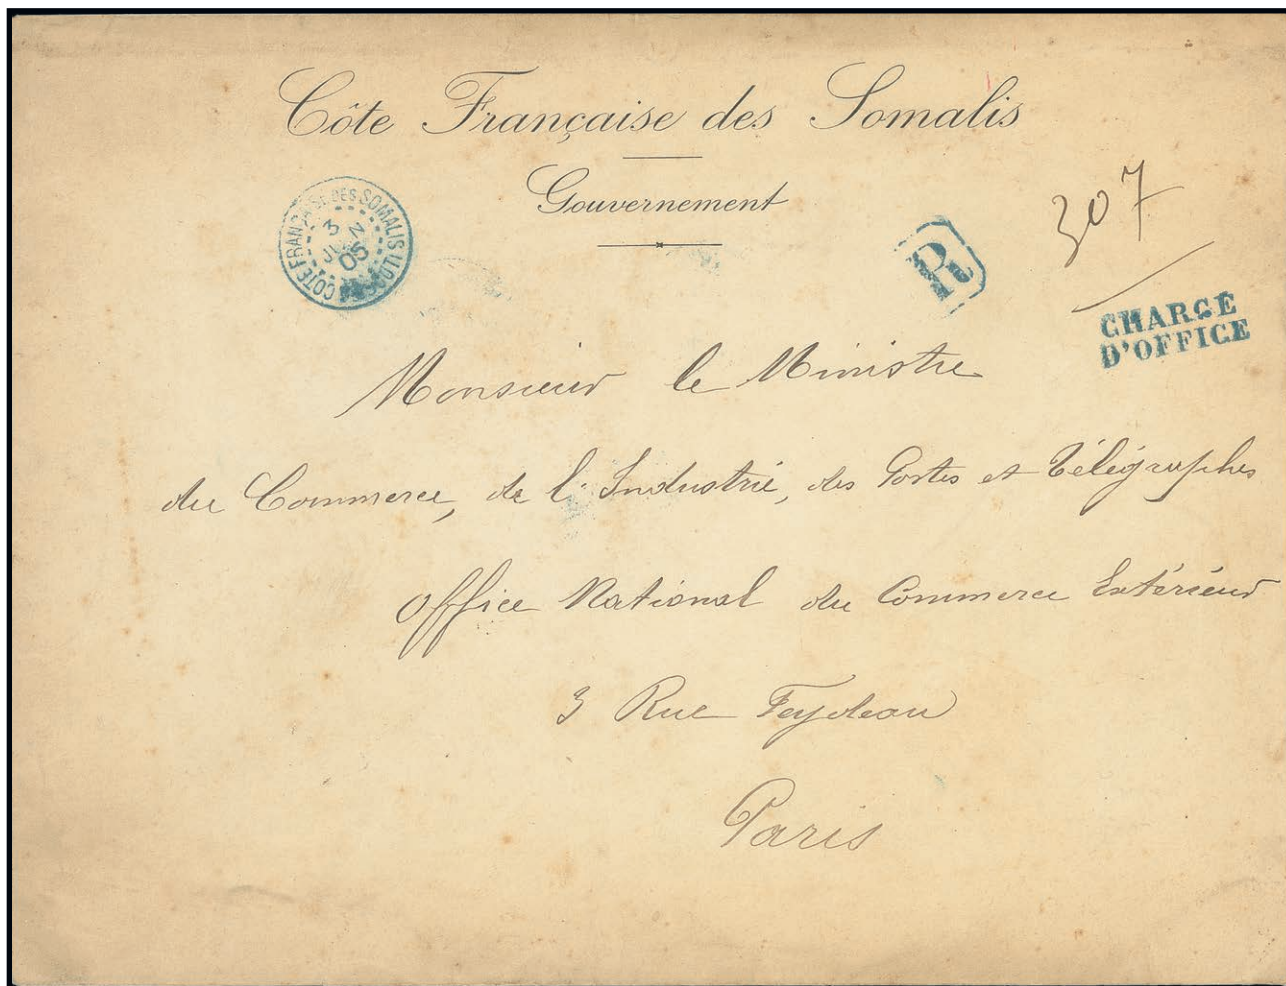 Côte Française des Somalis
Gouvernement
COTE FRANÇAISE DES SOMALIS
3
JUIN
05
R
307
CHARGÉ
D'OFFICE
Monsieur le Ministre
du Commerce, de l'Industrie, des Postes et Télégraphes
Office National du Commerce Extérieur
3 Rue Feydeau
Paris